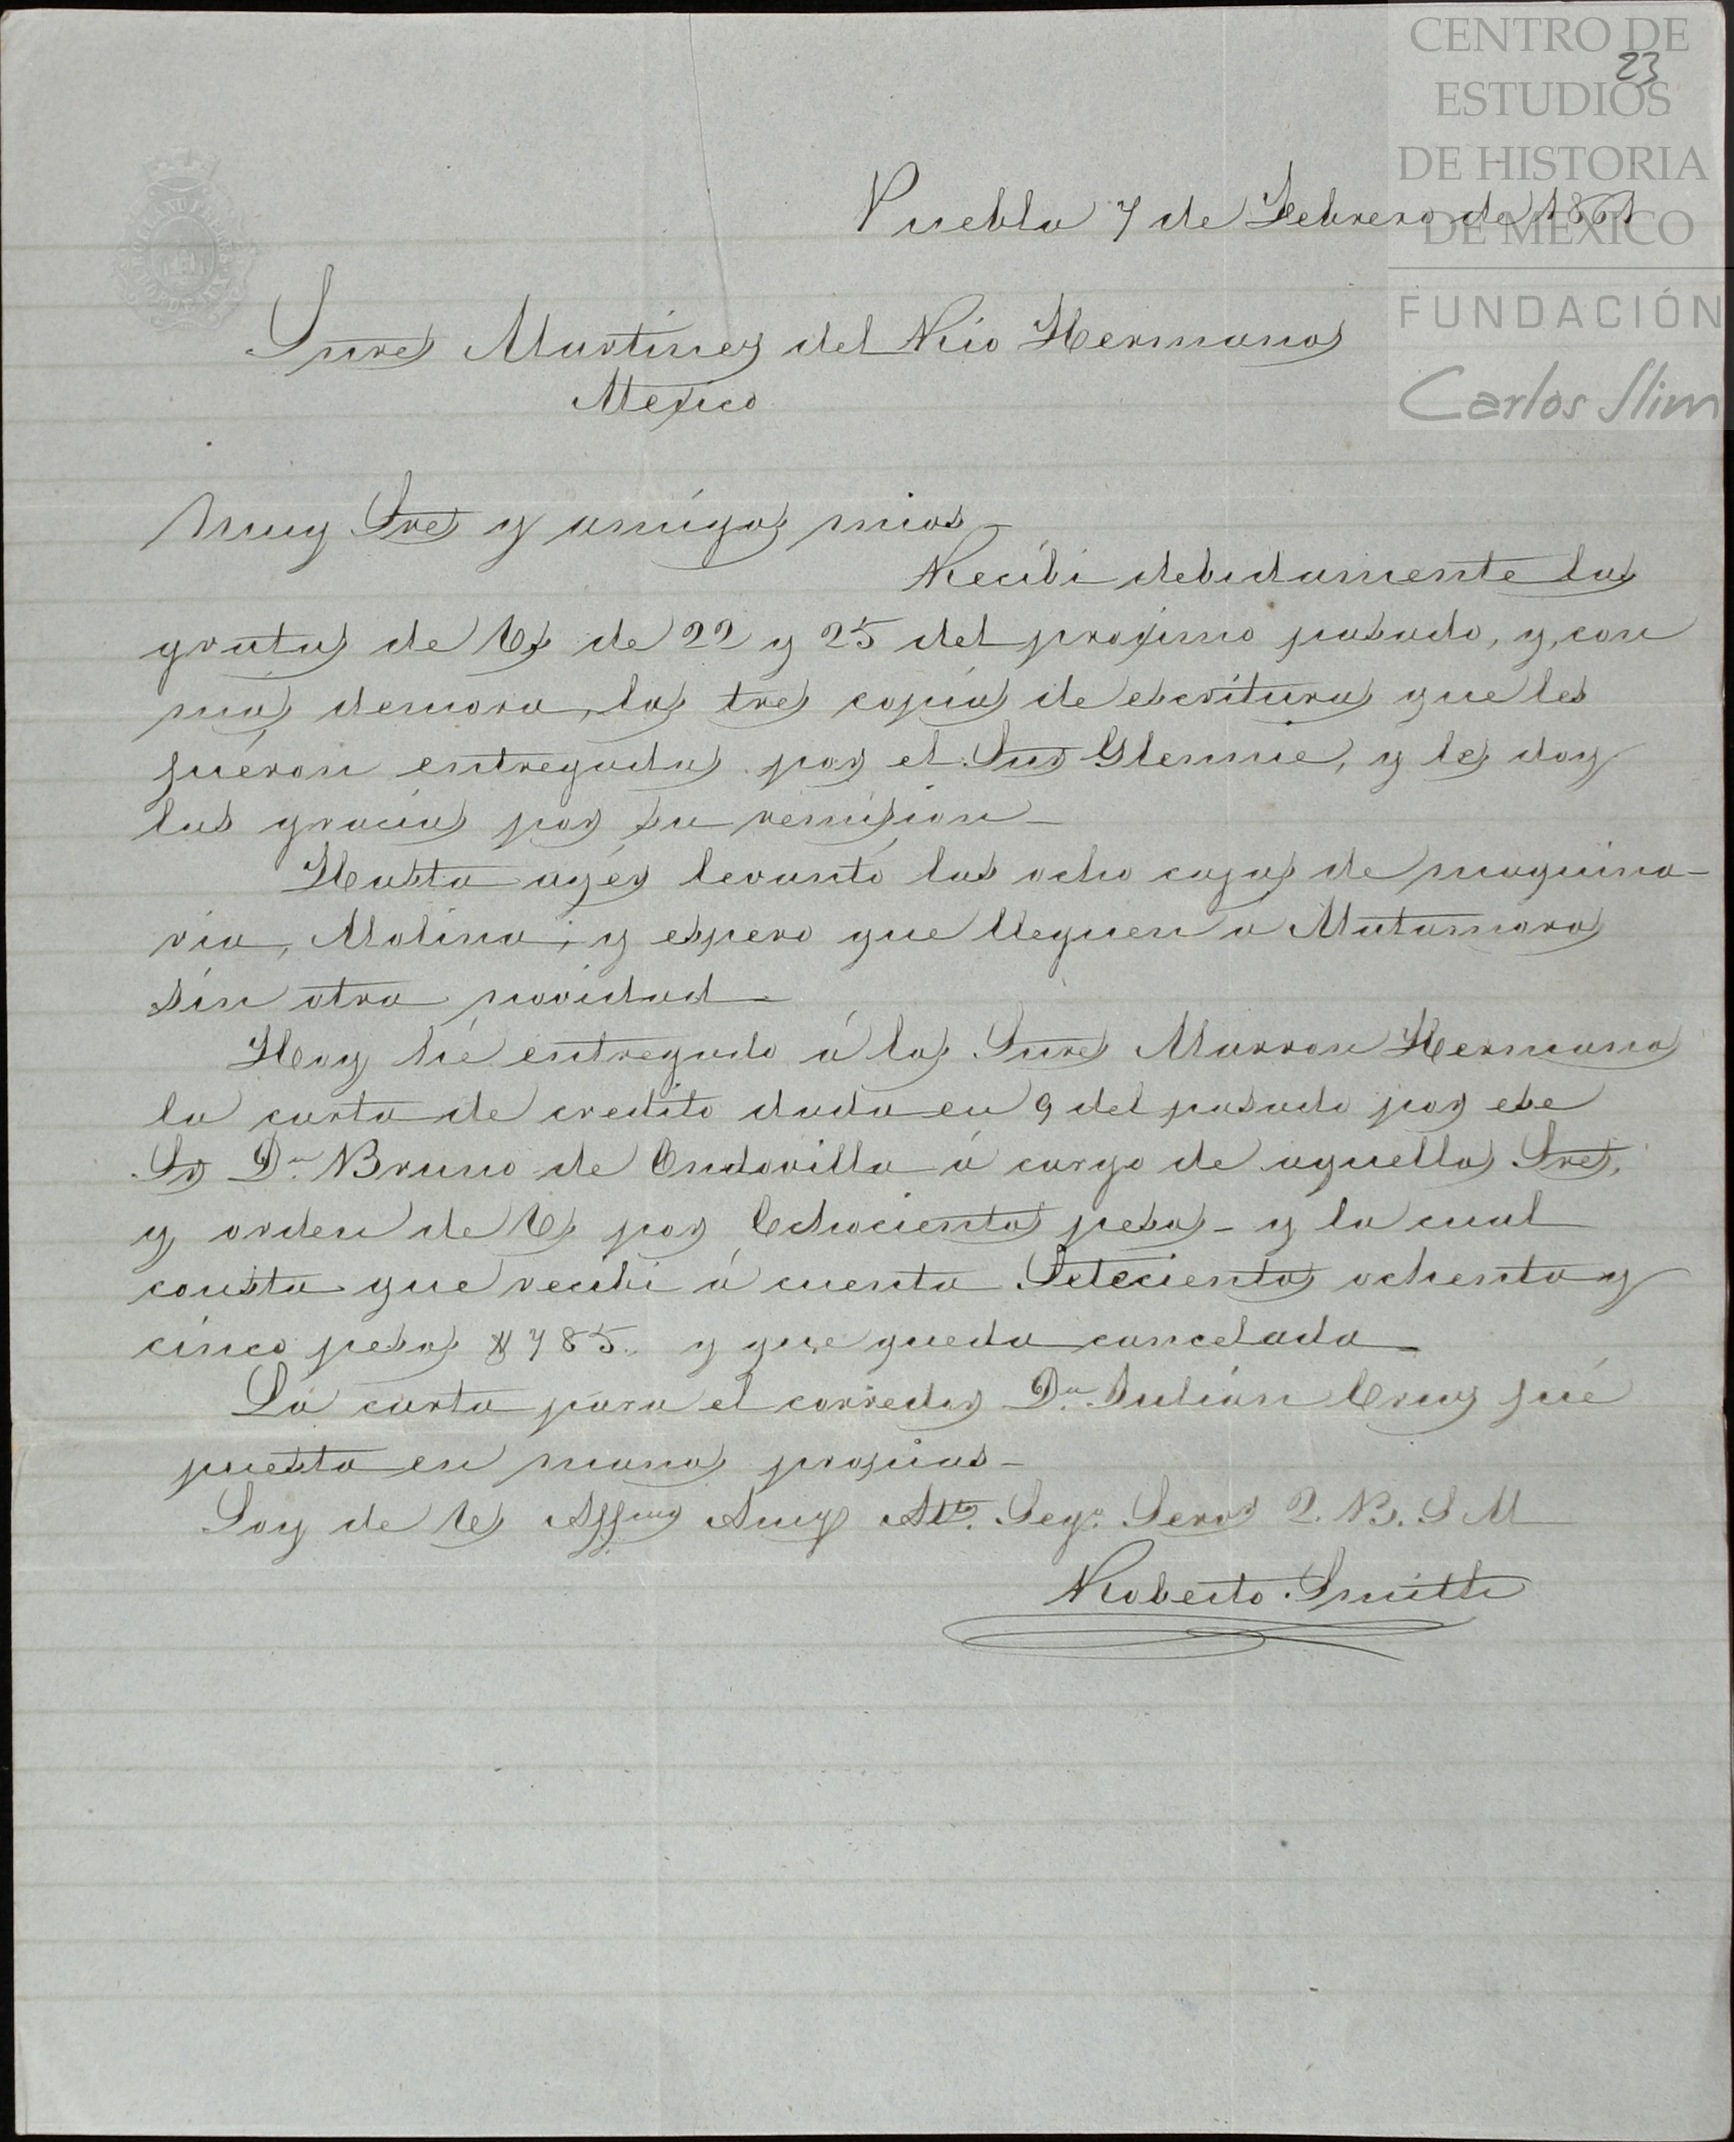 CENTRO DE
ESTUDIOS
DE HISTORIA
DE MÉXICO
FUNDACIÓN
Carlos Slim
23
Puebla 7 de Febrero de 1861
Snres Martinez del Rio Hermanos
Mexico
Muy Sres y amigos mios
Recibi debidamente las
gratas de Vs de 22 y 25 del proximo pasado, y, con
más demora, las tres copias de escrituras que les
fuéron entregadas por el Snr Glennie, y les doy
las gracias por su remision
Hasta ayér levantó las ocho cajas de maquina-
ria, Molina, y espero que lleguen a Matamoros
sin otra novidad
Hoy hé entregado á los Snres Marron Hermano
la carta de credito dada en 9 del pasado por ese
Sr Dn. Bruno de Ondovilla á cargo de aquellos Sres,
y orden de Vs por Ochocientos pesos - y la cual
consta que recibi á cuenta Setecientos ochenta y
cinco pesos $785.. y que queda cancelada
La carta para el corredor Dn. Julián Cruz fué
puesta en manos propias
Soy de Vs Affmo Amigo Atto. Sego. Servor Q. B. S M
Roberto Smith